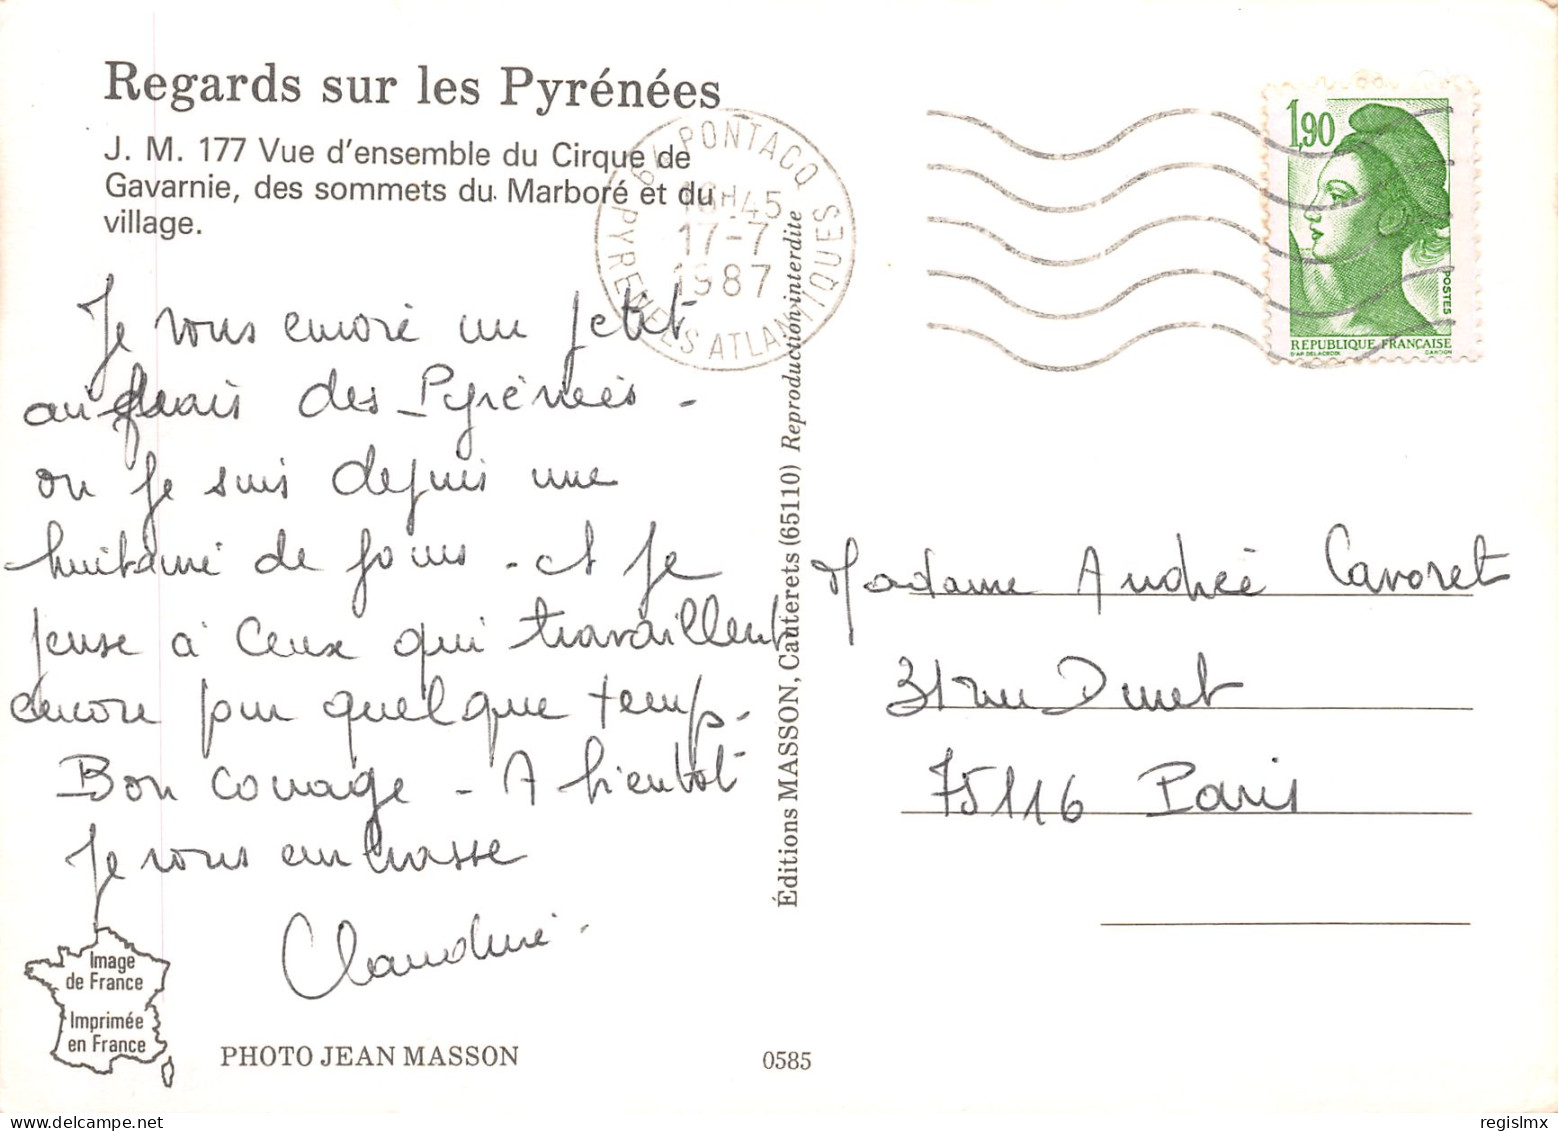 Regards sur les Pyrénées
J. M. 177 Vue d'ensemble du Cirque de
Gavarnie, des sommets du Marboré et du
village.
64 PONTACQ
18H45
17-7
1987
PYRENEES ATLANTIQUES
1,90
POSTES
REPUBLIQUE FRANÇAISE
D'AP. DELACROIX
GANDON
Je vous envoie un petit
au frais des Pyrénées -
ou je suis depuis une
huitaine de jours - et je
pense à ceux qui travaillent
encore pour quelque temps -
Bon courage - A bientôt
Je vous embrasse
Claudine -
Éditions MASSON, Cauterets (65110) Reproduction interdite
Madame Andrée Cavoret
31 rue Duret
75116 Paris
Image
de France
Imprimée
en France
PHOTO JEAN MASSON
0585
regislmx